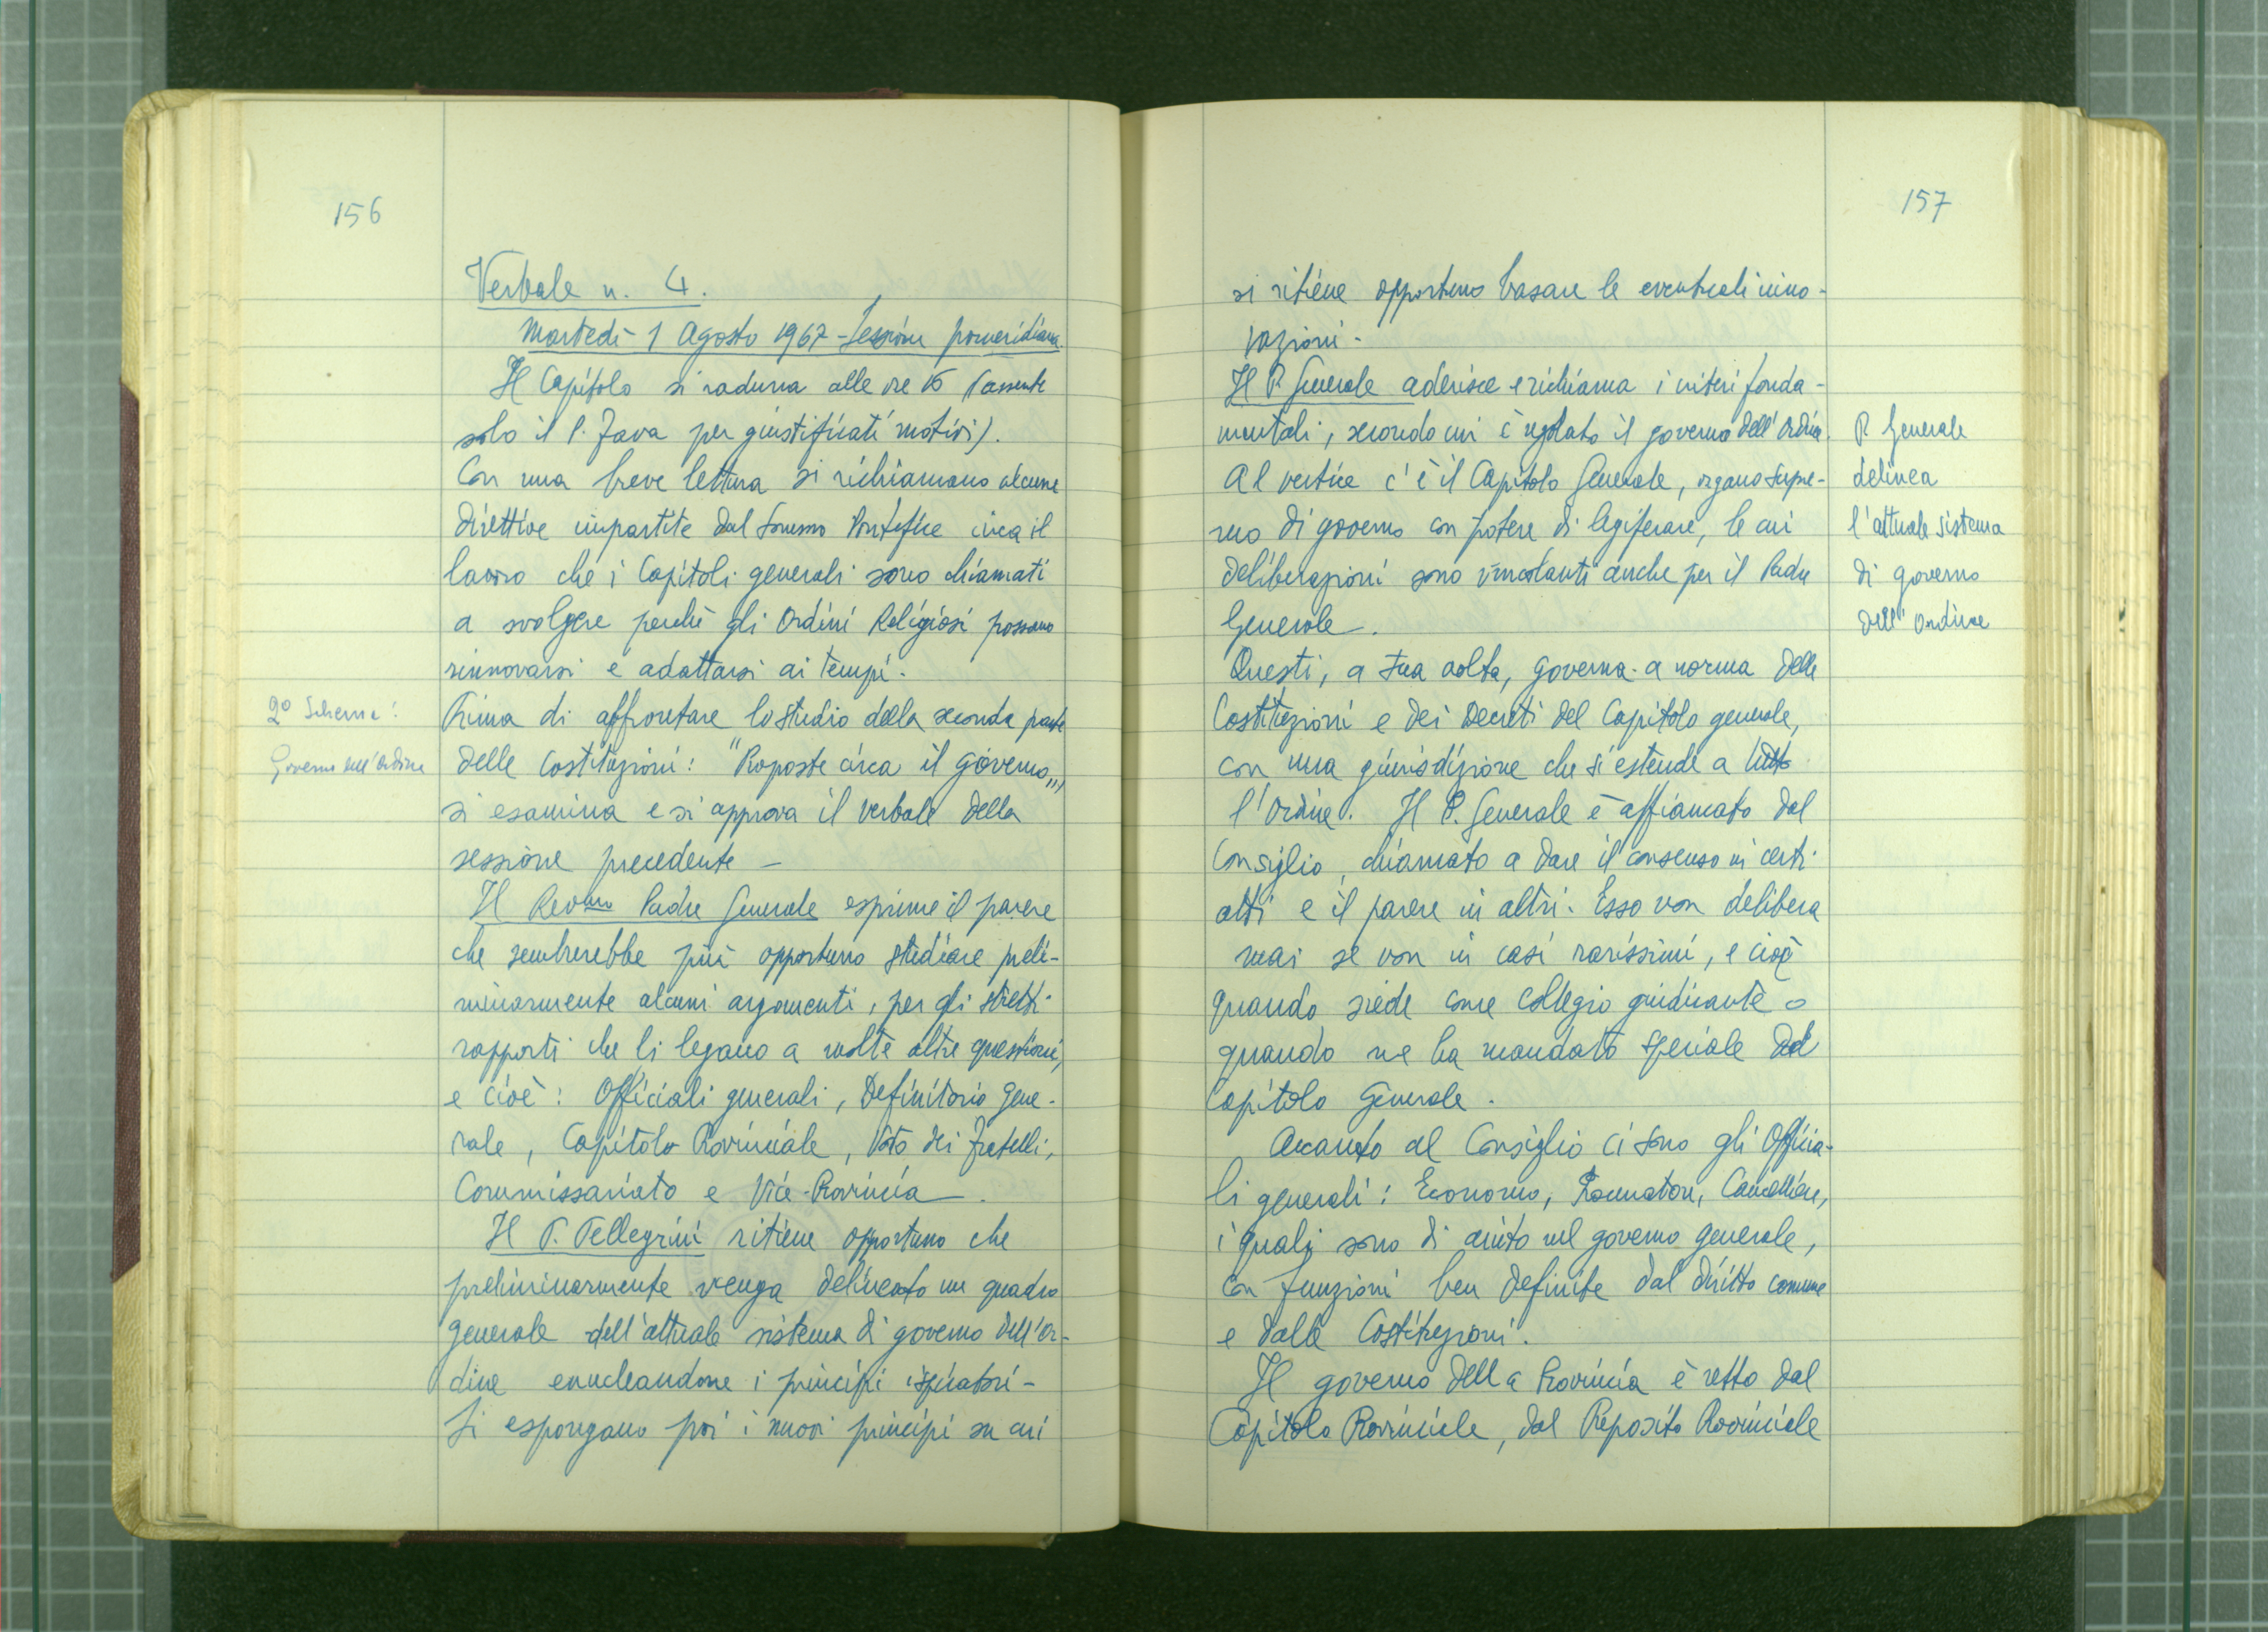 156
Verbale n. 4.
Martedì 1 Agosto 1967 - Sessione pomeridiana.
Il Capitolo si raduna alle ore 16 (assente
solo il P. Fava per giustificati motivi).
Con una breve lettura si richiamano alcune
direttive impartite dal Sommo Pontefice circa il
lavoro che i Capitoli generali sono chiamati
a svolgere perché gli Ordini Religiosi possano
rinnovarsi e adattarsi ai tempi.
2º Schema:
Governo dell'Ordine
Prima di affrontare lo studio della seconda parte
delle Costituzioni: "Proposte circa il governo",
si esamina e si approva il verbale della
sessione precedente -
Il Rev.mo Padre Generale esprime il parere
che sembrerebbe più opportuno studiare preli-
minarmente alcuni argomenti, per gli stretti
rapporti che li legano a molte altre questioni,
e cioè: Officiali generali, Definitorio Gene-
rale, Capitolo Provinciale, Voto dei Fratelli,
Commissariato e Vice-Provincia.
Il P. Pellegrini ritiene opportuno che
preliminarmente venga delineato un quadro
generale dell'attuale sistema di governo dell'Or-
dine enucleandone i principi ispiratori -
Si espongano poi i nuovi principi su cui
157
si ritiene opportuno basare le eventuali inno-
vazioni -
Il P. Generale aderisce e richiama i criteri fonda-
mentali, secondo cui è regolato il governo dell'Ordine.
Al vertice c'è il Capitolo Generale, organo supre-
mo di governo con potere di legiferare, le cui
deliberazioni sono vincolanti anche per il Padre
Generale.
P. Generale
delinea
l'attuale sistema
di governo
dell'Ordine
Questi, a sua volta, governa a norma delle
Costituzioni e dei Decreti del Capitolo generale,
con una giurisdizione che si estende a tutto
l'Ordine. Il P. Generale è affiancato dal
Consiglio, chiamato a dare il consenso in certi
atti e il parere in altri. Esso non delibera
mai se non in casi rarissimi, e cioè
quando siede come collegio giudicante o
quando ne ha mandato speciale dal
Capitolo Generale.
Accanto al Consiglio ci sono gli Officia-
li generali: Economo, Procuratore, Cancelliere,
i quali sono di aiuto nel governo generale,
con funzioni ben definite dal diritto comune
e dalle Costituzioni.
Il governo della Provincia è retto dal
Capitolo Provinciale, dal Preposito Provinciale